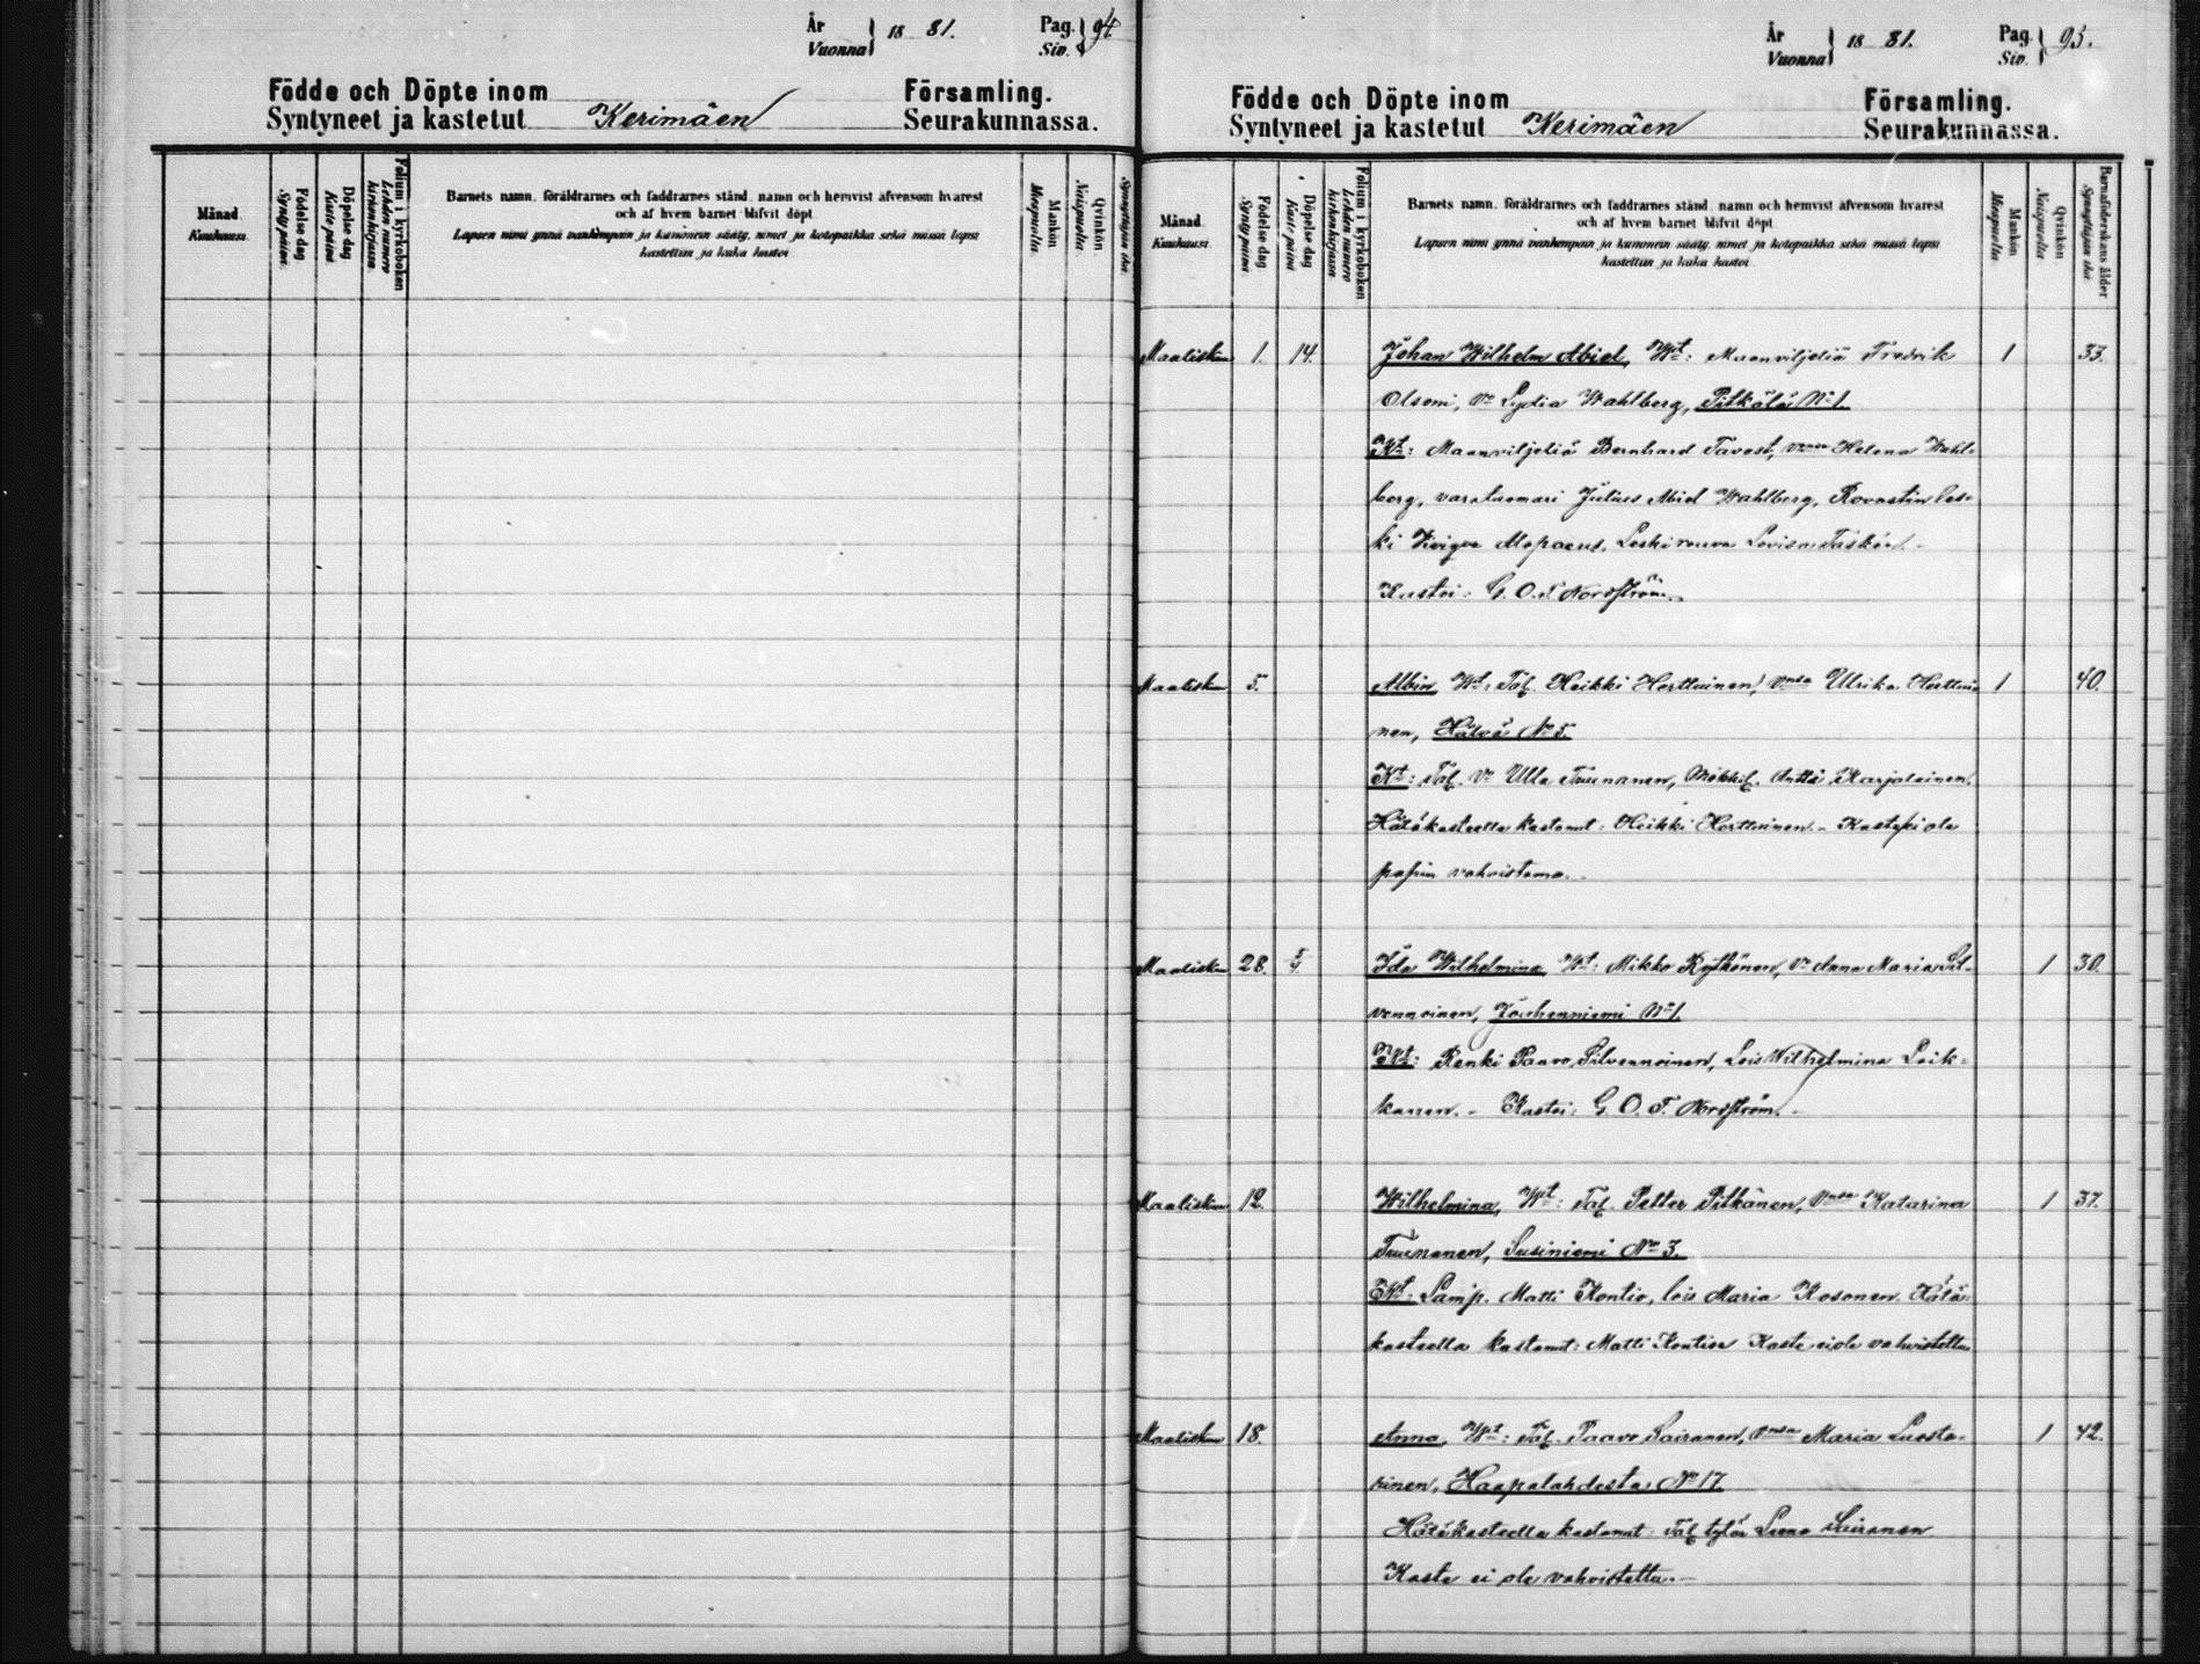 År
Vuonna } 18 81. Pag. Siv. } 94.
Födde och Döpte inom Församling.
Syntyneet ja kastetut Kerimäen Seurakunnassa.
Månad
Kuukausi.
Födelse dag
Synty päivä.
Döpelse dag
Kaste päivä
Folium i kyrkoboken
Lehden numero
kirkonkirjassa
Barnets namn, föräldrarnes och faddrarnes stånd, namn och hemvist äfvensom hvarest
och af hvem barnet blifvit döpt
Lapsen nimi ynnä vanhempain ja kummein sääty, nimet ja kotopaikka sekä missä lapsi
kastettiin ja kuka kastoi
Mankön
Miespuolia
Qvinkön.
Naispuolia.
Synnyttäjän ikä.
År
Vuonna } 18 81. Pag. Siv. } 95.
Födde och Döpte inom Församling.
Syntyneet ja kastetut Kerimäen Seurakunnassa.
Månad
Kuukausi.
Födelse dag
Synty päivä
Döpelse dag
Kaste päivä
Folium i kyrkoboken
Lehden numero
kirkonkirjassa.
Barnets namn, föräldrarnes och faddrarnes stånd, namn och hemvist äfvensom hvarest
och af hvem barnet blifvit döpt
Lapsen nimi ynnä vanhempain ja kummein sääty, nimet ja kotopaikka sekä missä lapsi
kastettiin ja kuka kastoi
Mankön
Miespuolia
Qvinkön
Naispuolia
Barnaföderskans ålder
Synnyttäjän ikä
Maalisku 1. 14. Johan Wilhelm Abiel, Wt: Maanviljeliä Fredrik 1 33.
Olsoni, Vo Lydia Wahlberg, Pitkälä No 1.
Kt: Maanviljeliä Bernhard Tavast, Helena Wahl-
berg, varatuomari Julius Abiel Wahlberg, Rovastin les-
ki Alopaeus, Leski rouva Lovisa
Kastoi: G. O. F. Nordström.
Maalisku 5. Albin Wt: Tal. Heikki Herttuinen, Vnsa Ulrika Herttui- 1 40.
nen, No 5.
Kt: Tal. Vo Ulla Tuunanen, Antti Karjalainen.
Hätäkasteella kastanut: Heikki Herttuinen. - Kastesi ole
papin vahvistama.
Maalisku 28. 5/4 Ida Wilhelmina Wt: Mikko Rytkönen, Vo Anna Maria Sil- 1 30.
vennoinen, Jouhenniemi No 1.
Kt: Renki Paavo Silvennoinen, Lois Wilhelmina Leik-
kanen. - Kastoi: G. O. F. Nordström. -
Maalisku 12. Wilhelmina, Wt: Tal. Petter Pitkänen, Vnsa Katarina 1 37.
Tuunanen, Susiniemi No 3.
Kt: Lamp. Matti Kontio, lois Maria Kosonen. Hätä-
kasteella kastanut: Matti Kontio Kaste eiole vahvistettu
Maalisku 18. Anna, Wt: Tal. Paavo Sairanen, Vnsa Maria Luosta- 1 42.
rinen, Haapalahdesta No 17.
Hätäkasteella kastanut: Tal. tytär Leena Sairanen
Kaste ei ole vahvistettu. -